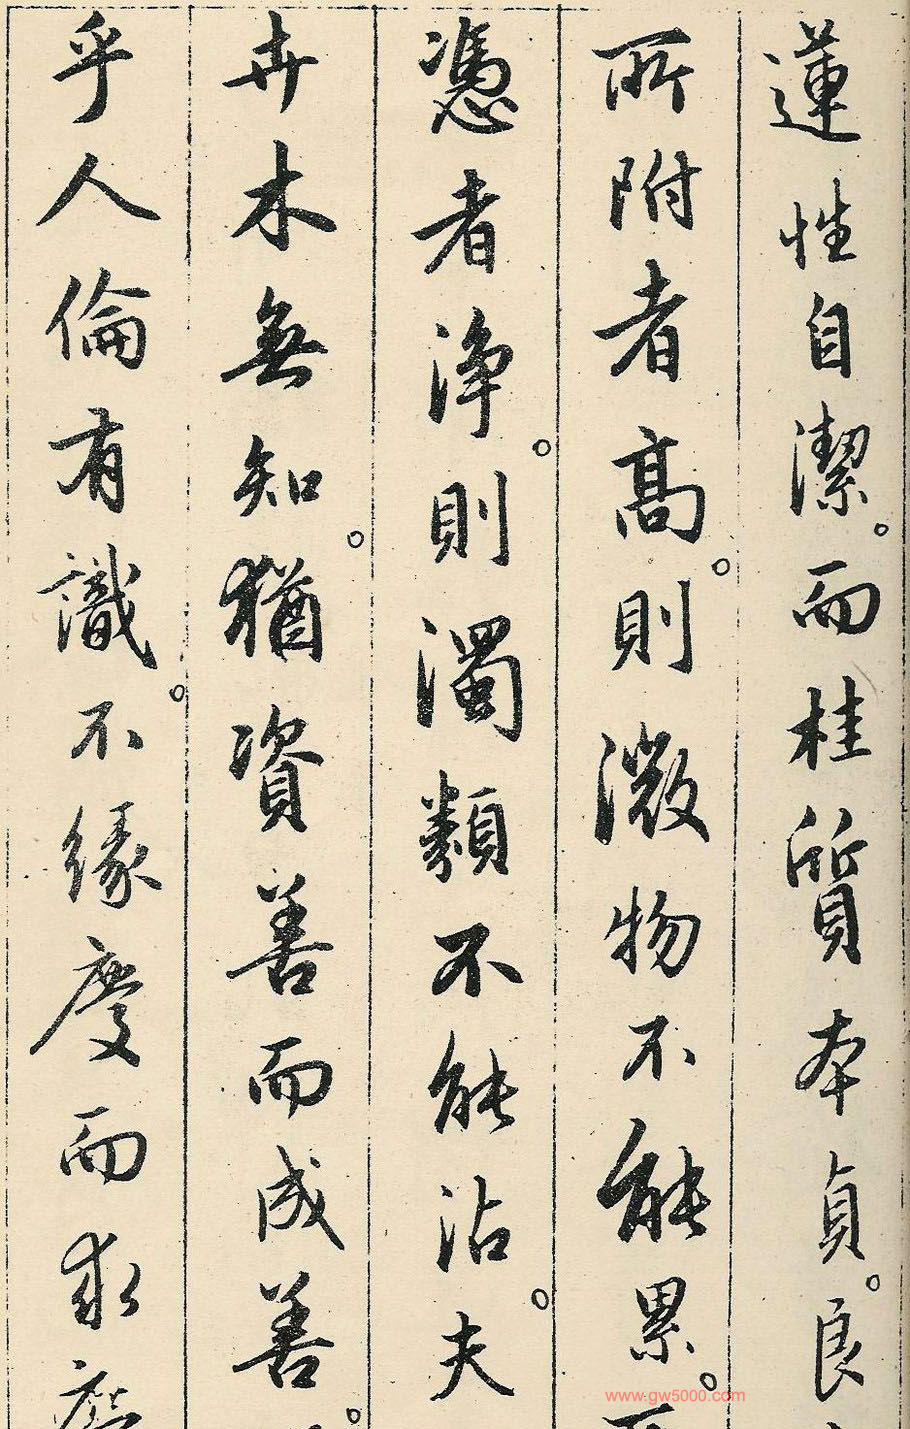 蓮性自潔。而桂質本貞。良
所附者高。則微物不能累。
憑者淨。則濁類不能沾。夫
卉木無知。猶資善而成善
乎人倫有識。不緣慶而求慶
www.gw5000.com